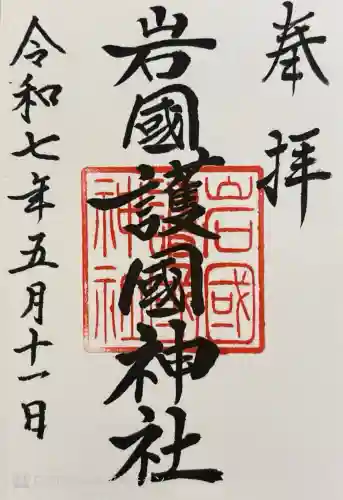 奉拝
岩國護國神社
岩國護國神社
令和七年五月十一日